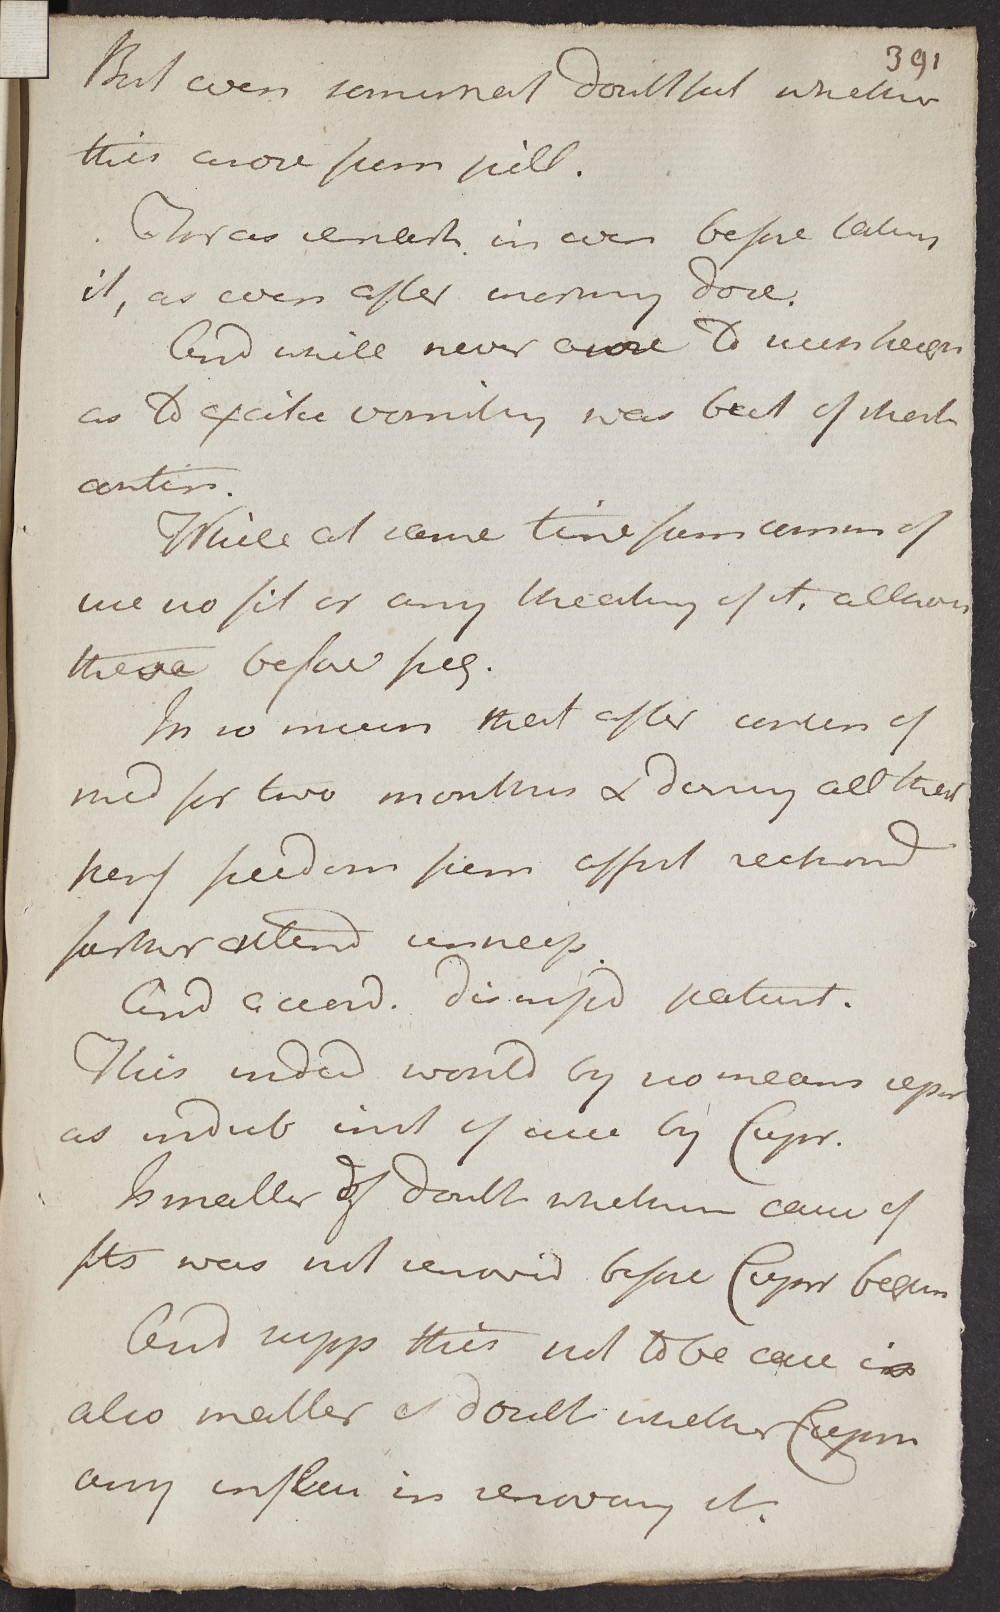 391
But even somewhat doubtful whether
this arose from pill.
Thor as in even before taken
it, as even after morning dose.
And while never arose to
as to excite vomiting was but of short
contin.
While at same time from commen of
use no fit or any threatning of it, altho
these before freq.
In so much that after contin of
med for two months & during all that
perf freedom from affect reckond
farther attend unneces.
And accord. dismissd patient.
This indeed would by no means repr
as indub inst of cure by Cupr.
Is matter of doubt whether cause of
fits was not removed before Cupr begun
And supp this not to be case is
also matter of doubt whether Cuprum
any influen in removing it.